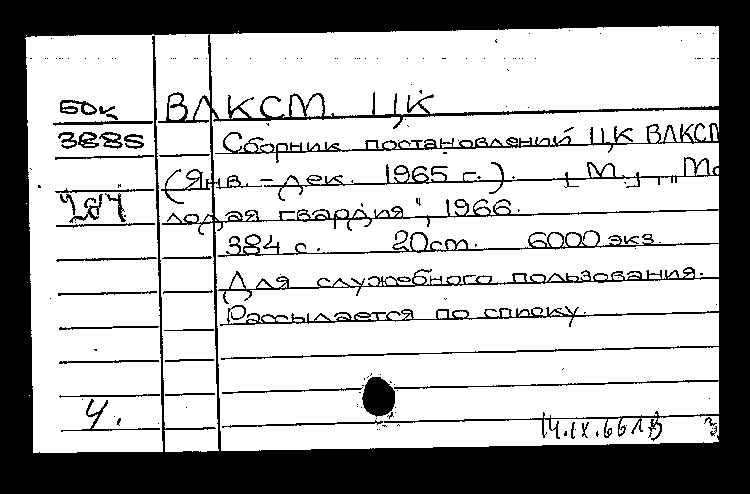 БОК ВЛКСМ. ЦК
3885 Сборник постановлений ЦК ВЛКСМ
(Янв. – дек. 1965 г.). [М.], "Мо
лодая гвардия", 1966.
384 с. 20 см. 6000 экз.
Для служебного пользования.
Рассылается по списку.
14.IX.66